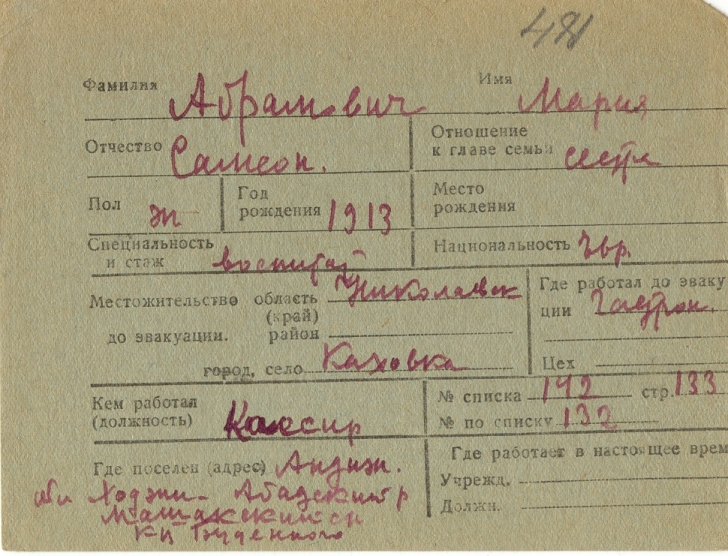 481
Фамилия Абрамович Имя Мария
Отчество Самсон. Отношение к главе семьи сестра
Пол ж Год рождения 1913 Место рождения
Специальность и стаж воспитат Национальность Евр.
Местожительство до эвакуации. область (край) Николаевск
район
город, село Каховка
Где работал до эваку
ции Гастрон.
Цех
Кем работал (должность) Кассир
№ списка 142 стр. 133
№ по списку 132
Где поселен (адрес) Андиж.
обл Ходжи-Абадский р
к-з Буденного
Где работает в настоящее врем
Учрежд.
Должн.